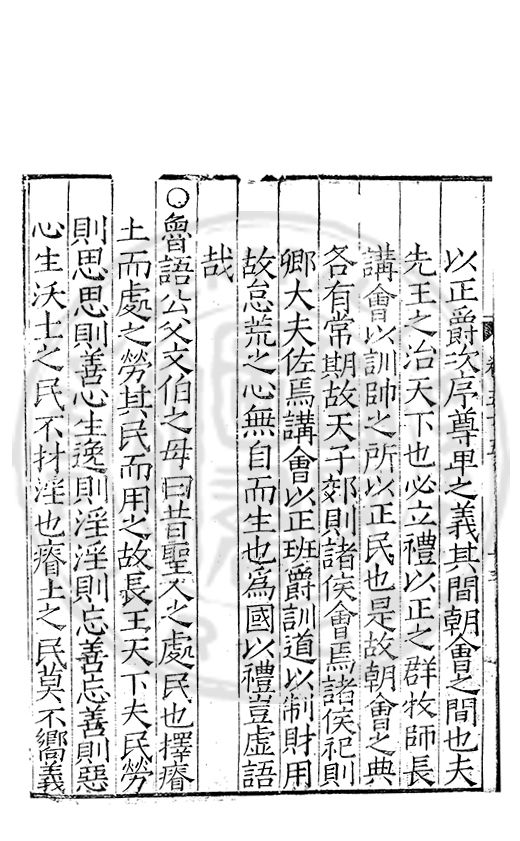 以正爵次序尊卑之義其間朝會之間也夫
先王之治天下也必立禮以正之群牧師長
講會以訓帥之所以正民也是故朝會之典
各有常期故天子郊則諸侯會焉諸侯祀則
卿大夫佐焉講會以正班爵訓道以制財用
故怠荒之心無自而生也為國以禮豈虚語
哉
○魯語公父文伯之母曰昔聖人之處民也擇瘠
土而處之勞其民而用之故長王天下夫民勞
則思思則善心生逸則淫淫則忘善忘善則惡
心生沃土之民不材淫也瘠土之民莫不嚮義